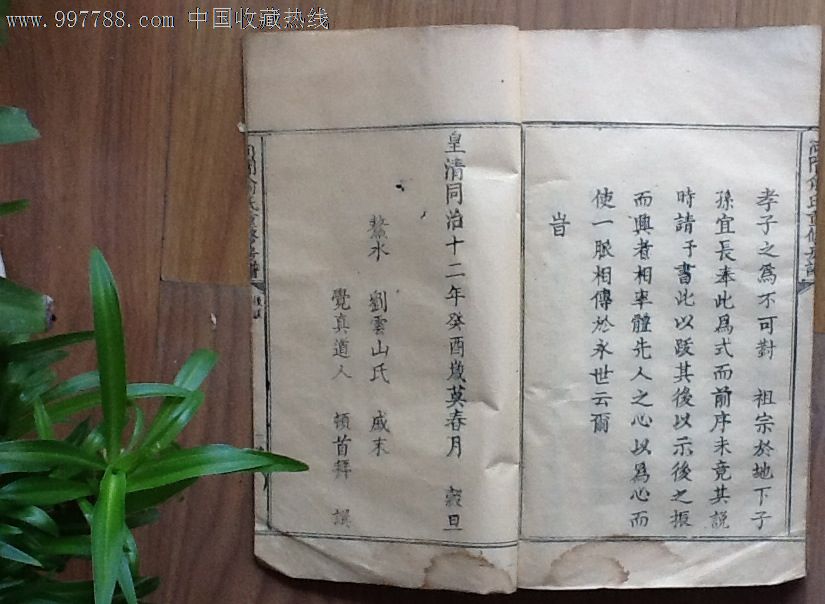 www.997788.com 中国收藏热线
孝子之為不可對 祖宗於地下子
孫宜長奉此為式而前序未竟其說
時請于書此以跋其後以示後之振
而興者相率體先人之心以爲心而
使一脈相傳於永世云爾
旹
皇清同治十二年癸酉歲莫春月 穀旦
鰲水 劉雲山氏 戚末
覺真道人 頓首拜 撰